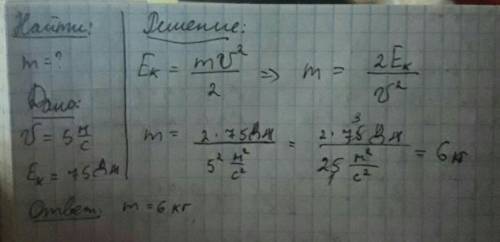 Найти:
m = ?
Дано:
v = 5 м/с
Eк = 75 Дж
Решение:
Eк = mv²/2 => m = 2Eк/v²
m = 2·75 Дж / 5² м²/с² = 2·75 3 Дж / 25 м²/с² = 6 кг
Ответ: m = 6 кг